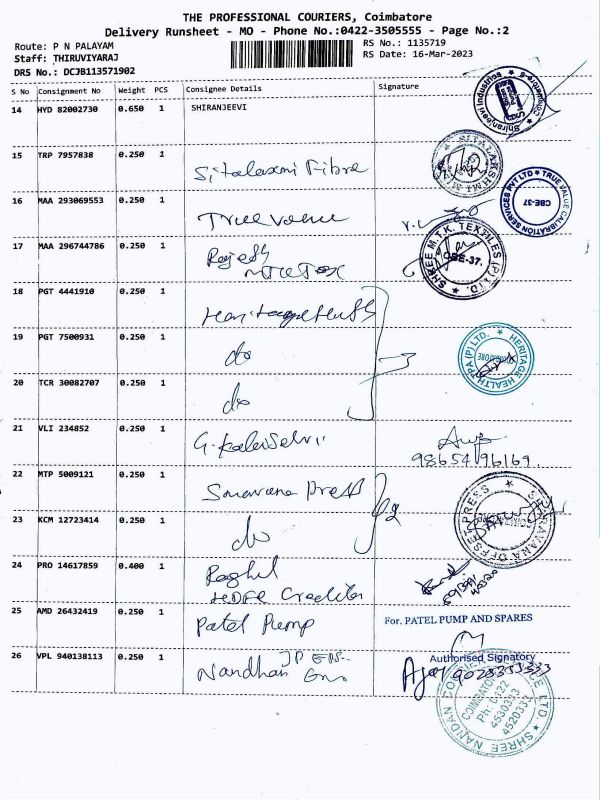 THE PROFESSIONAL COURIERS, Coimbatore
Delivery Runsheet - MO - Phone No.:0422-3505555 - Page No.:2
Route: P N PALAYAM
RS No.: 1135719
Staff: THIRUVIYARAJ
RS Date: 16-Mar-2023
DRS No.: DCJB113571902
S No Consignment No Weight PCS Consignee Details Signature
14 HYD 82002730 0.650 1 SHIRANJEEVI
Shiranjeevi Industries
15 TRP 7957838 0.250 1 Sitalaxmi Fibre
16 MAA 293069553 0.250 1 True value
TRUE VALUE CALIBRATION SERVICES PVT LTD ★ CBE-37
17 MAA 296744786 0.250 1 Rajesh
MTK Tex
SHREE M.T.K. TEXTILES (P) LTD. ★ CBE-37.
18 PGT 4441910 0.250 1 Heritage Health
19 PGT 7500931 0.250 1 do
HERITAGE HEALTH TPA (P) LTD. ★
20 TCR 30082707 0.250 1 do
21 VLI 234852 0.250 1 G. Kalaiselvi
98654 96169.
22 MTP 5009121 0.250 1 Saravana Press
SARAVANA OFFSET PRESS ★
23 KCM 12723414 0.250 1 do
24 PRO 14617859 0.400 1 Raghul
HDFC Credila
25 AMD 26432419 0.250 1 Patel Pump
For. PATEL PUMP AND SPARES
Authorised Signatory
26 VPL 940138113 0.250 1 Nandhan
COIMBATORE
Ph: 0422
4530333
4520333